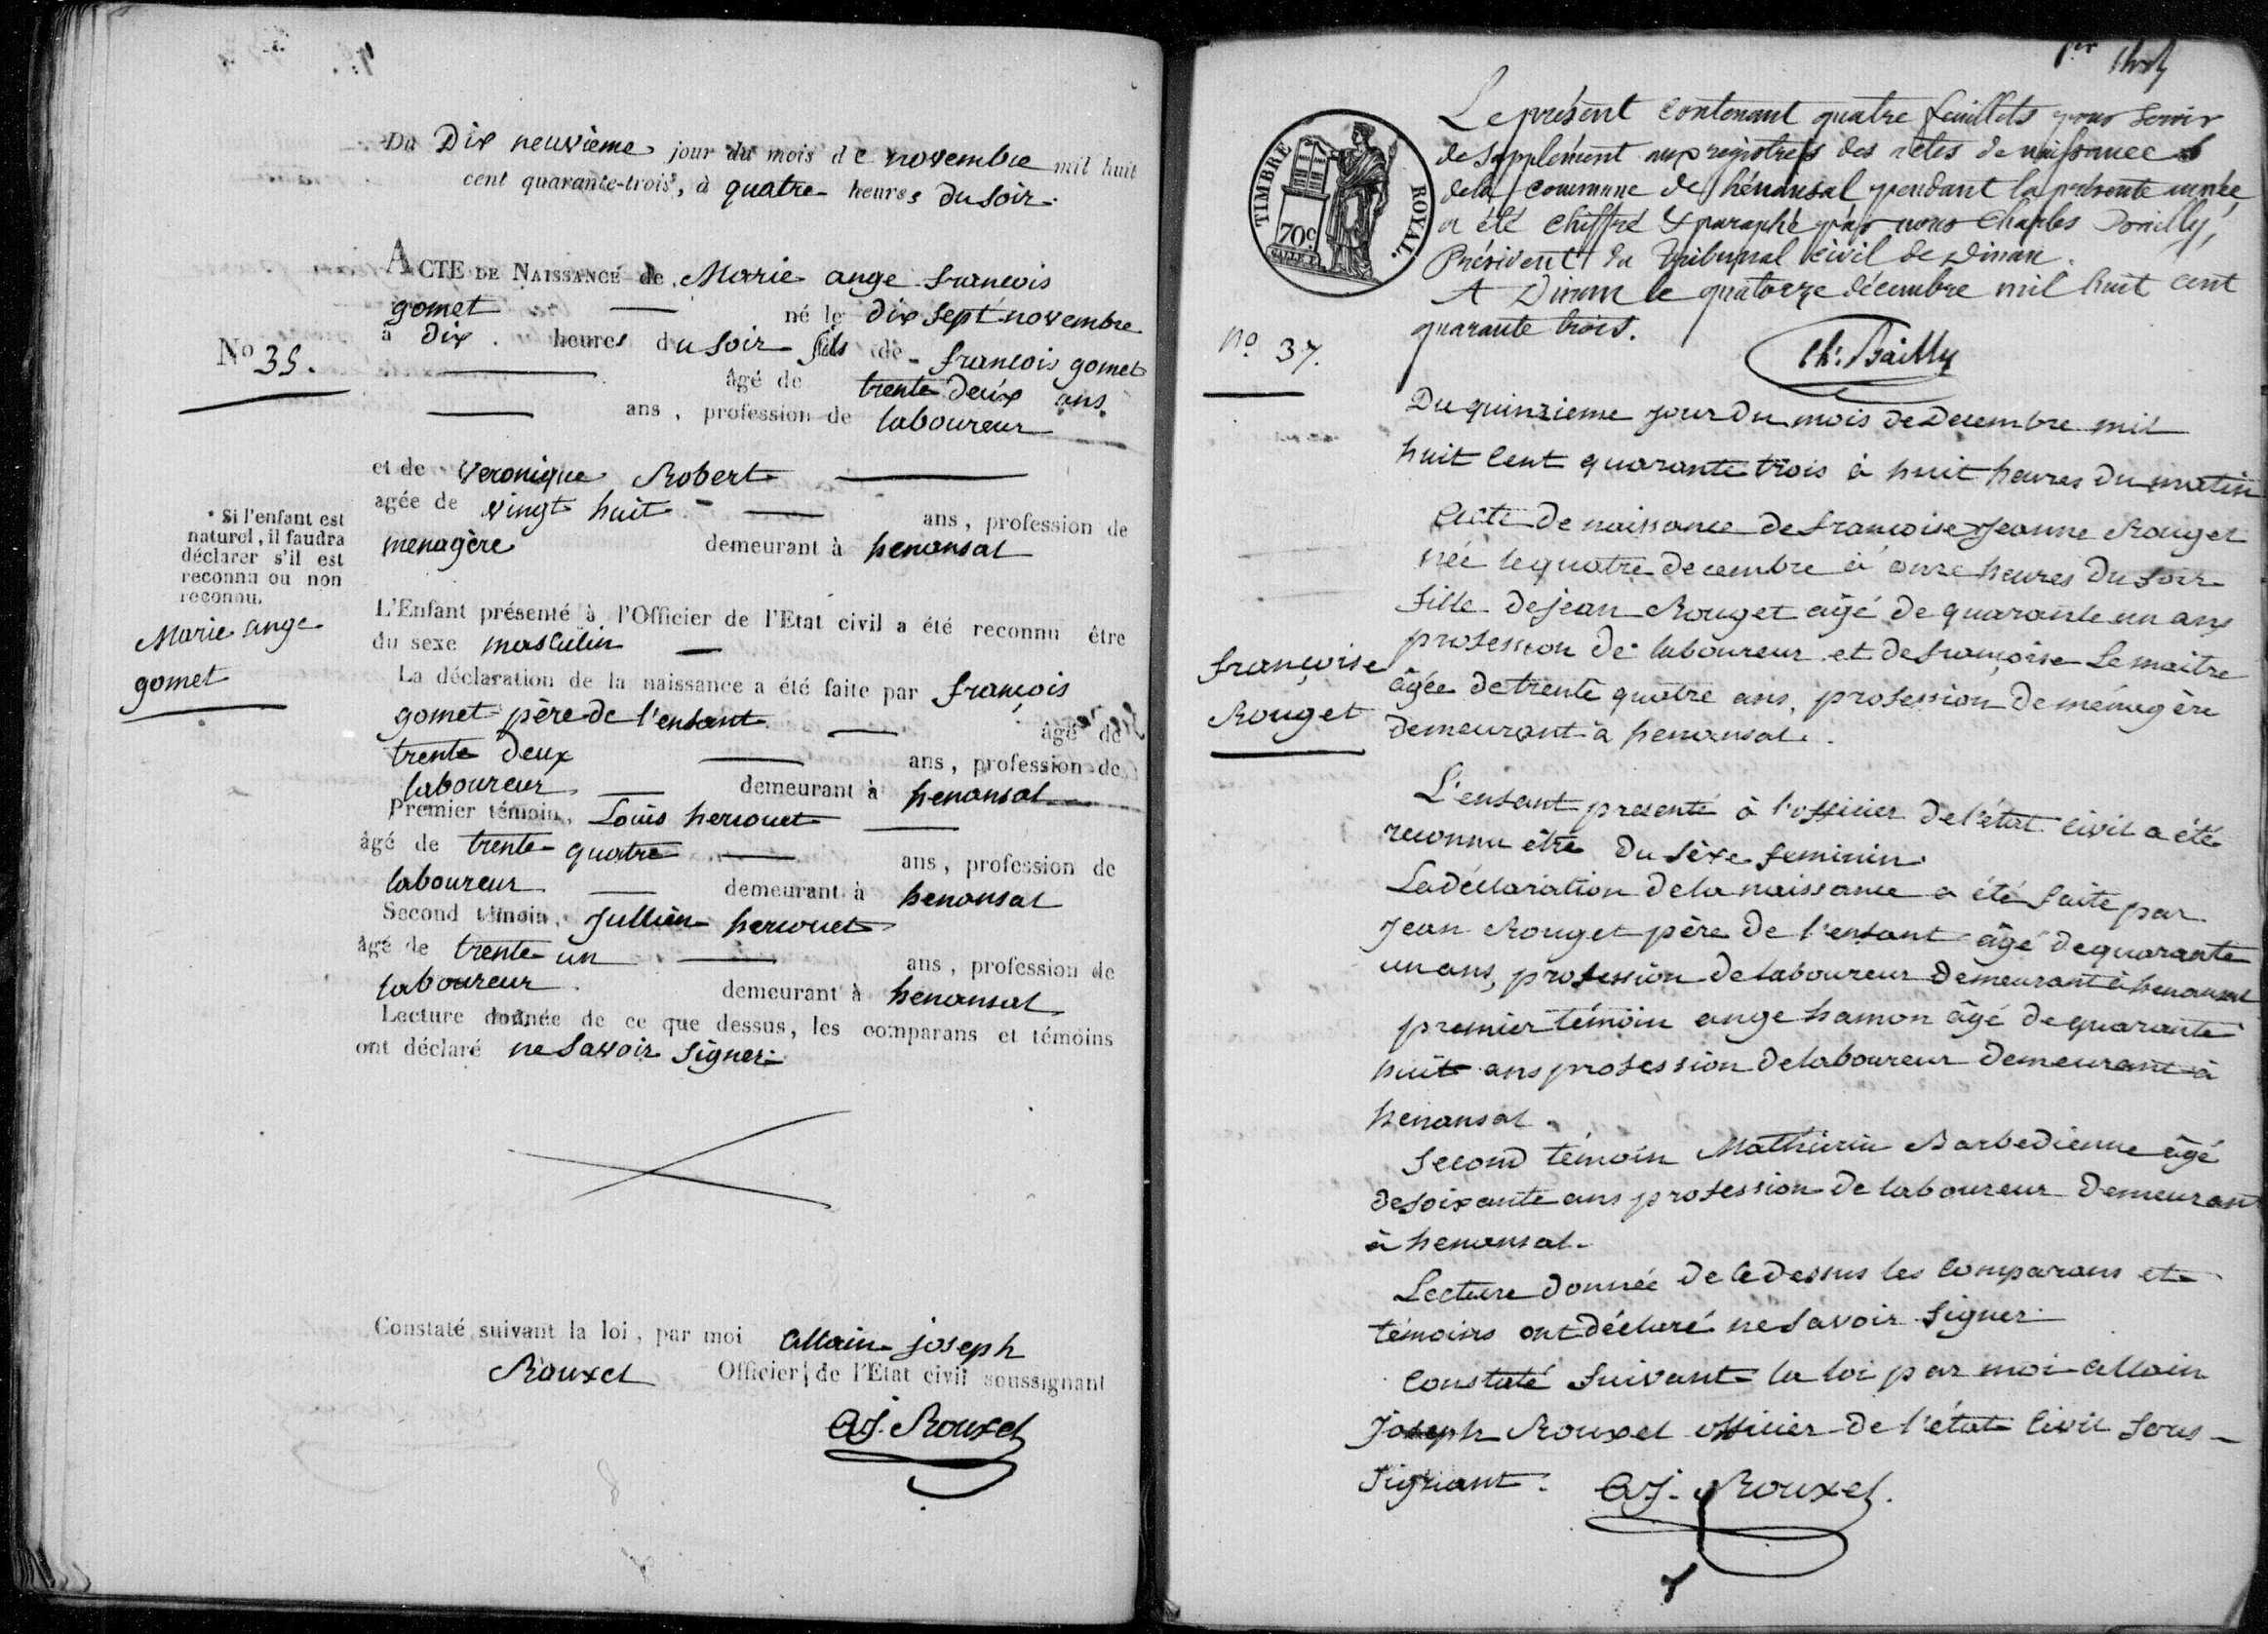 Du Dix neuvième jour du mois de novembre mil huit
cent quarante-trois, à quatre heures du soir.
ACTE DE NAISSANCE de Marie ange francois
gomet né le dix sept novembre
à dix heures du soir fils de francois gomet
âgé de trente deux ans
ans, profession de laboureur
et de veronique Robert
agée de vingt huit ans, profession de
menagère demeurant à henansal
L'Enfant présenté à l'Officier de l'Etat civil a été reconnu être
du sexe masculin
La déclaration de la naissance a été faite par françois
gomet père de l'enfant âgé de
trente deux ans, profession de
laboureur demeurant à henansal
Premier témoin, Louis hercouet
âgé de trente quatre ans, profession de
laboureur demeurant à henansal
Second témoin, Jullien hercouet
âgé de trente un ans, profession de
laboureur demeurant à henansal
Lecture donnée de ce que dessus, les comparans et témoins
ont déclaré ne savoir signer
Constaté suivant la loi, par moi allain joseph
Rouxel Officier de l'Etat civil soussignant
aj. Rouxel
No 35.
* Si l'enfant est
naturel, il faudra
déclarer s'il est
reconnu ou non
reconnu.
Marie ange
gomet
TIMBRE ROYAL.
70c
Le présent contenant quatre feuillets pour servir
de supplément aux registres des actes de naissance
de la commune de hénansal pendant la présente année,
a été chiffré & paraphé par nous Charles Bailly,
Président du Tribunal civil de Dinan.
A Dinan le quatorze décembre mil huit cent
quarante trois.
Ch. Bailly
no 37.
Du quinzieme jour du mois de Decembre mil
huit cent quarante trois à huit heures du matin
Acte de naissance de francoise Jeanne Rouget
née le quatre decembre à onze heures du soir
fille de jean Rouget âgé de quarante un ans
profession de laboureur et de françoise Lemaitre
âgée de trente quatre ans, profession de ménagère
demeurant à henansal.
françoise
Rouget
L'enfant presenté à l'officier de l'état civil a été
reconnu être du sèxe feminin.
La déclaration de la naissance a été faite par
Jean Rouget père de l'enfant âgé de quarante
un ans, profession de laboureur demeurant à henansal
premier témoin ange hamon âgé de quarante
huit ans profession de laboureur demeurant à
henansal.
Second témoin Mathurin Barbedienne âgé
de soixante ans profession de laboureur demeurant
à henansal.
Lecture donnée de ce dessus les comparans et
témoins ont déclaré ne savoir signer
constaté suivant la loi par moi allain
Joseph Rouxel officier de l'état civil sous-
signant. aj. Rouxel.